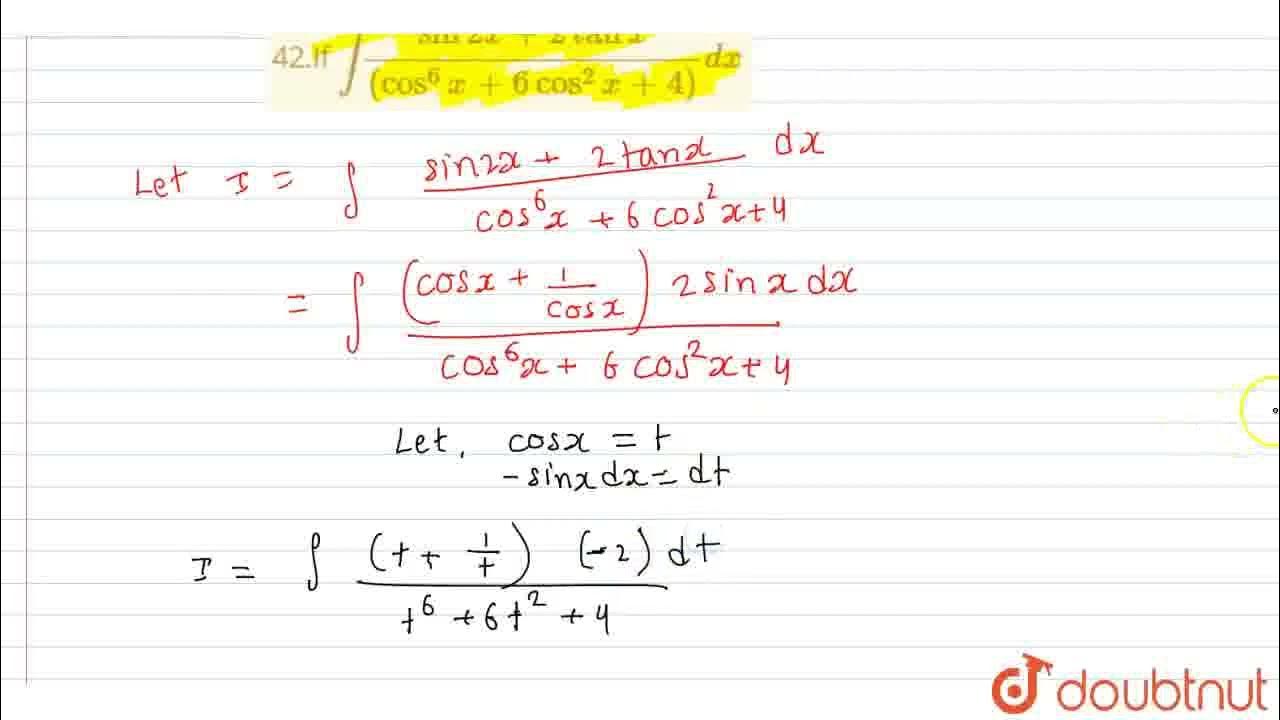 42.If ∫ sin 2x + 2 tan x / (cos⁶ x + 6 cos² x + 4) dx
Let I = ∫ sin2x + 2tanx / cos⁶x + 6 cos²x+4 dx
= ∫ (cosx + 1/cosx) 2 sin x dx / cos⁶x + 6 cos²x+4
Let, cosx = t
- sinx dx = dt
I = ∫ (t + 1/t) (-2) dt / t⁶ + 6t² + 4
doubtnut